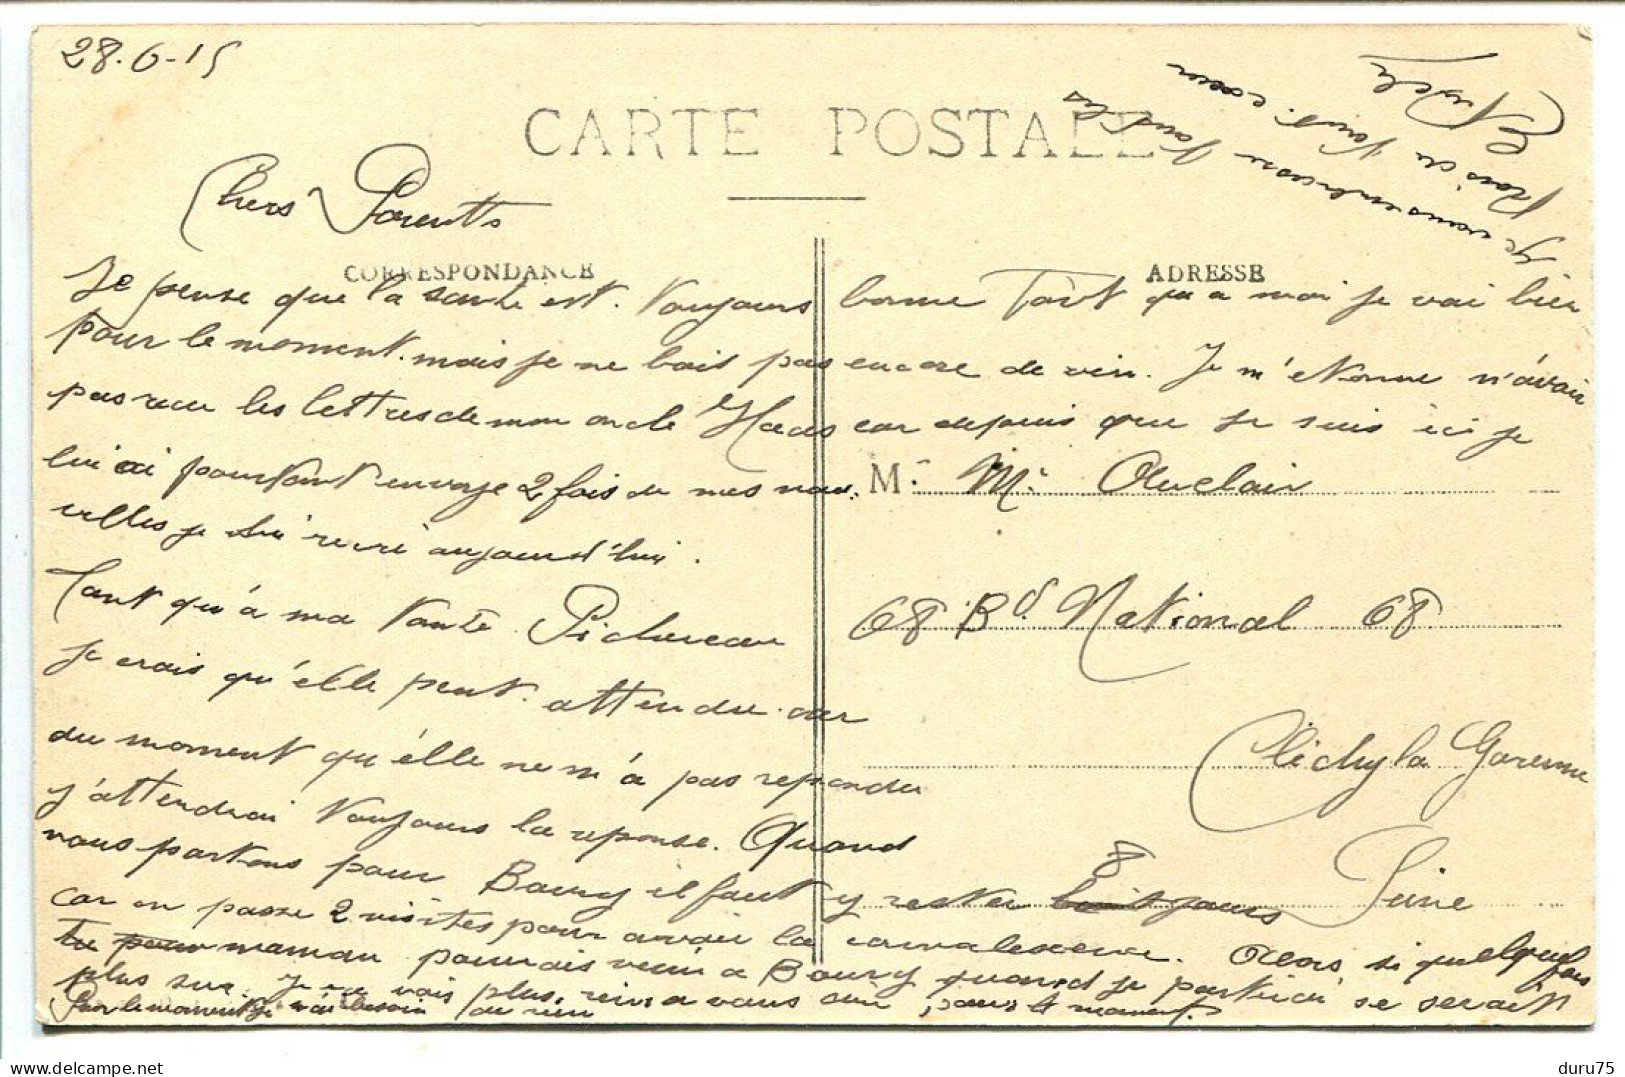 28-6-15
CARTE POSTALE
Chers Parents
CORRESPONDANCE
ADRESSE
Je pense que la sante est toujours bonne Tant qu a moi je vai bien
pour le moment. mais je ne bois pas encore de vin. Je m'etonne n'avoir
pas recu les lettres de mon oncle Haas car depuis que je suis ici je
lui ai pourtant envoye 2 fois de mes nou
velles je lui recri aujourd'hui.
Tant qu'à ma tante Pichereau
je crois qu'elle peut attendre car
du moment qu'elle ne m'a pas repondu
j'attendrai toujours la reponse. Quand
nous partons pour Bourg il faut y rester 8 jours
car on passe 2 visites pour avoir la convalescence. Alors si quelquefois
tu pour maman pourrais venir a Bourg quand je partirai se serait
plus sur. Je ne vois plus rien a vous dire pour le moment.
Pour le moment je n'ai besoin de rien
Je vous embrasse tous les
trois de tout coeur
M. Mr Auclair
68 Bd National 68
Clichy la Garenne
Seine
duru75